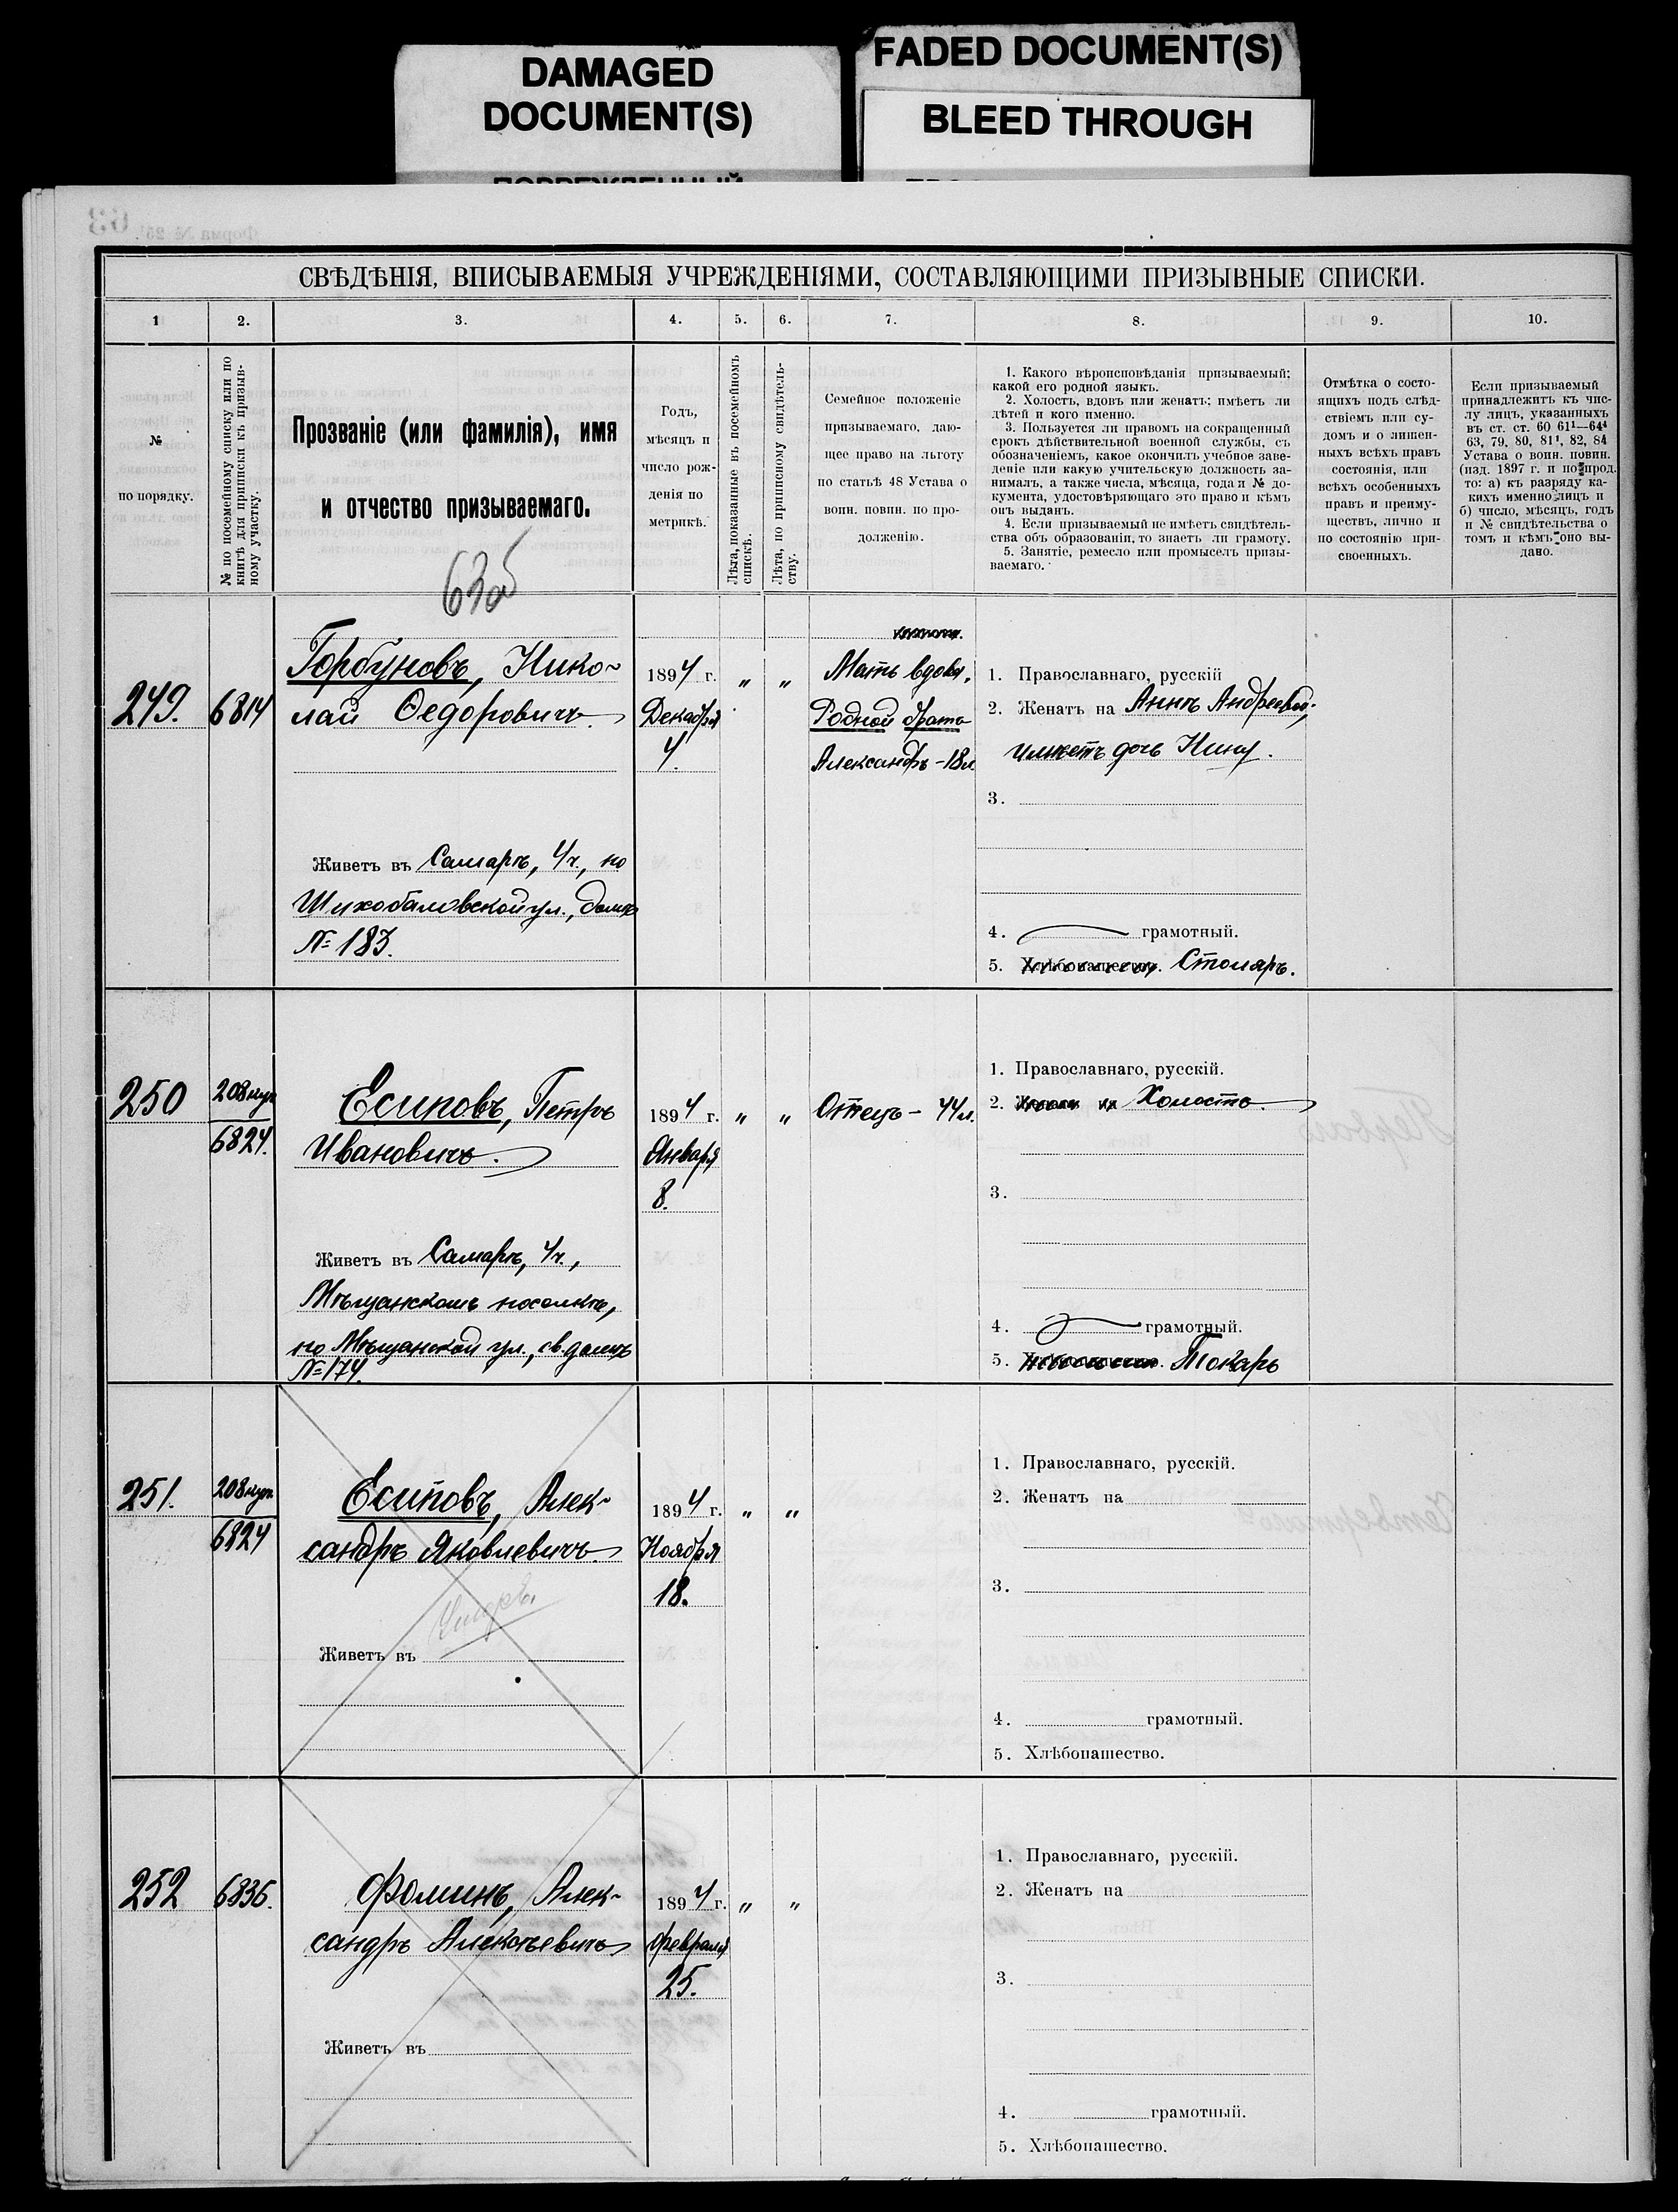 DAMAGED
DOCUMENT(S)
FADED DOCUMENT(S)
BLEED THROUGH
СВѢДѢНІЯ, ВПИСЫВАЕМЫЯ УЧРЕЖДЕНІЯМИ, СОСТАВЛЯЮЩИМИ ПРИЗЫВНЫЕ СПИСКИ.
1 2. 3. 4. 5. 6. 7. 8. 9. 10.
№
по порядку.
№ по посемейному списку или по
книгѣ для приписки къ призыв-
ному участку.
Прозваніе (или фамилія), имя
и отчество призываемаго.
63об
Годъ,
мѣсяцъ и
число рож-
денія по
метрикѣ.
Лѣта, показанные въ посемейномъ
спискѣ.
Лѣта, по приписному свидѣтель-
ству.
Семейное положеніе
призываемаго, даю-
щее право на льготу
по статьѣ 48 Устава о
воин. повин. по про-
долженію.
1. Какого вѣроисповѣданія призываемый;
какой его родной языкъ.
2. Холостъ, вдовъ или женатъ; имѣетъ ли
дѣтей и кого именно.
3. Пользуется ли правомъ на сокращенный
срокъ дѣйствительной военной службы, съ
обозначеніемъ, какое окончилъ учебное заве-
деніе или какую учительскую должность за-
нималъ, а также числа, мѣсяца, года и № до-
кумента, удостовѣряющаго это право и кѣмъ
онъ выданъ.
4. Если призываемый не имѣетъ свидѣтель-
ства объ образованіи, то знаетъ ли грамоту.
5. Занятіе, ремесло или промыселъ призы-
ваемаго.
Отмѣтка о состо-
ящихъ подъ слѣд-
ствіемъ или су-
домъ и о лишен-
ныхъ всѣхъ правъ
состоянія, или
всѣхъ особенныхъ
правъ и преиму-
ществъ, лично и
по состоянію при-
своенныхъ.
Если призываемый
принадлежитъ къ чис-
лу лицъ, указанныхъ
въ ст. ст. 60 61¹—64⁴
63, 79, 80, 81¹, 82, 84
Устава о воин. повин.
(изд. 1897 г. и по прод.
то: а) къ разряду ка-
кихъ именно лицъ и
б) число, мѣсяцъ, годъ
и № свидѣтельства о
томъ и кѣмъ оно вы-
дано.
249. 6814
Горбуновъ, Нико-
лай Ѳедоровичъ.
Живетъ въ Самарѣ, 4ч., по
Шихобаловской ул., домъ
№ 183.
1894 г.
Декабря
4.
" "
Мать вдова,
Родной братъ
Александръ - 18л
1. Православнаго, русскій
2. Женатъ на Аннѣ Андреевой;
имѣетъ дочь Нину.
3.
4. грамотный.
5. Хлѣбопашество. Столяръ.
250 208
6824.
Есиповъ, Петръ
Ивановичъ.
Живетъ въ Самарѣ, 4ч.,
Мѣщанскомъ поселкѣ,
по Мѣщанской ул., св. домъ
№ 174.
1894 г.
Января
8.
" "
Отецъ - 44л.
1. Православнаго, русскій.
2. Женатъ на Холостъ.
3.
4. грамотный.
5. Токарь
251. 208
6824
Есиповъ, Алек-
сандръ Яковлевичъ
Умеръ.
Живетъ въ
1894 г.
Ноября
18.
" "
1. Православнаго, русскій.
2. Женатъ на
3.
4. грамотный.
5. Хлѣбопашество.
252 6836.
Фоминъ, Алек-
сандръ Алексѣевичъ
Живетъ въ
1894 г.
Февраля
25.
" "
1. Православнаго, русскій.
2. Женатъ на
3.
4. грамотный.
5. Хлѣбопашество.